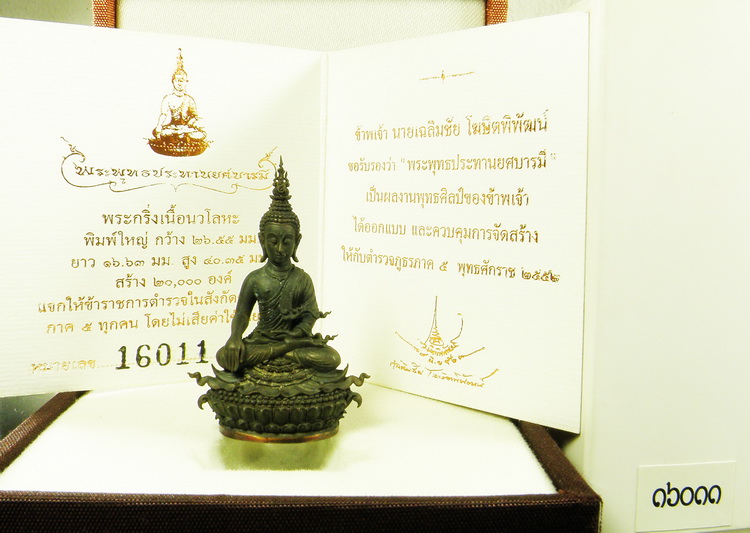 พระพุทธประทานยศบารมี
พระกริ่งเนื้อนวโลหะ
พิมพ์ใหญ่ กว้าง ๒๖.๕๕ มม.
ยาว ๑๖.๖๓ มม. สูง ๔๐.๓๕ มม.
สร้าง ๒๐,๐๐๐ องค์
แจกให้ข้าราชการตำรวจในสังกัด
ภาค ๕ ทุกคน โดยไม่เสียค่าใช้
หมายเลข.... 16011
ข้าพเจ้า นายเฉลิมชัย โฆษิตพิพัฒน์
ขอรับรองว่า "พระพุทธประทานยศบารมี"
เป็นผลงานพุทธศิลป์ของข้าพเจ้า
ได้ออกแบบ และควบคุมการจัดสร้าง
ให้กับตำรวจภูธรภาค ๕ พุทธศักราช ๒๕๕๒
๑๖๐๑๑